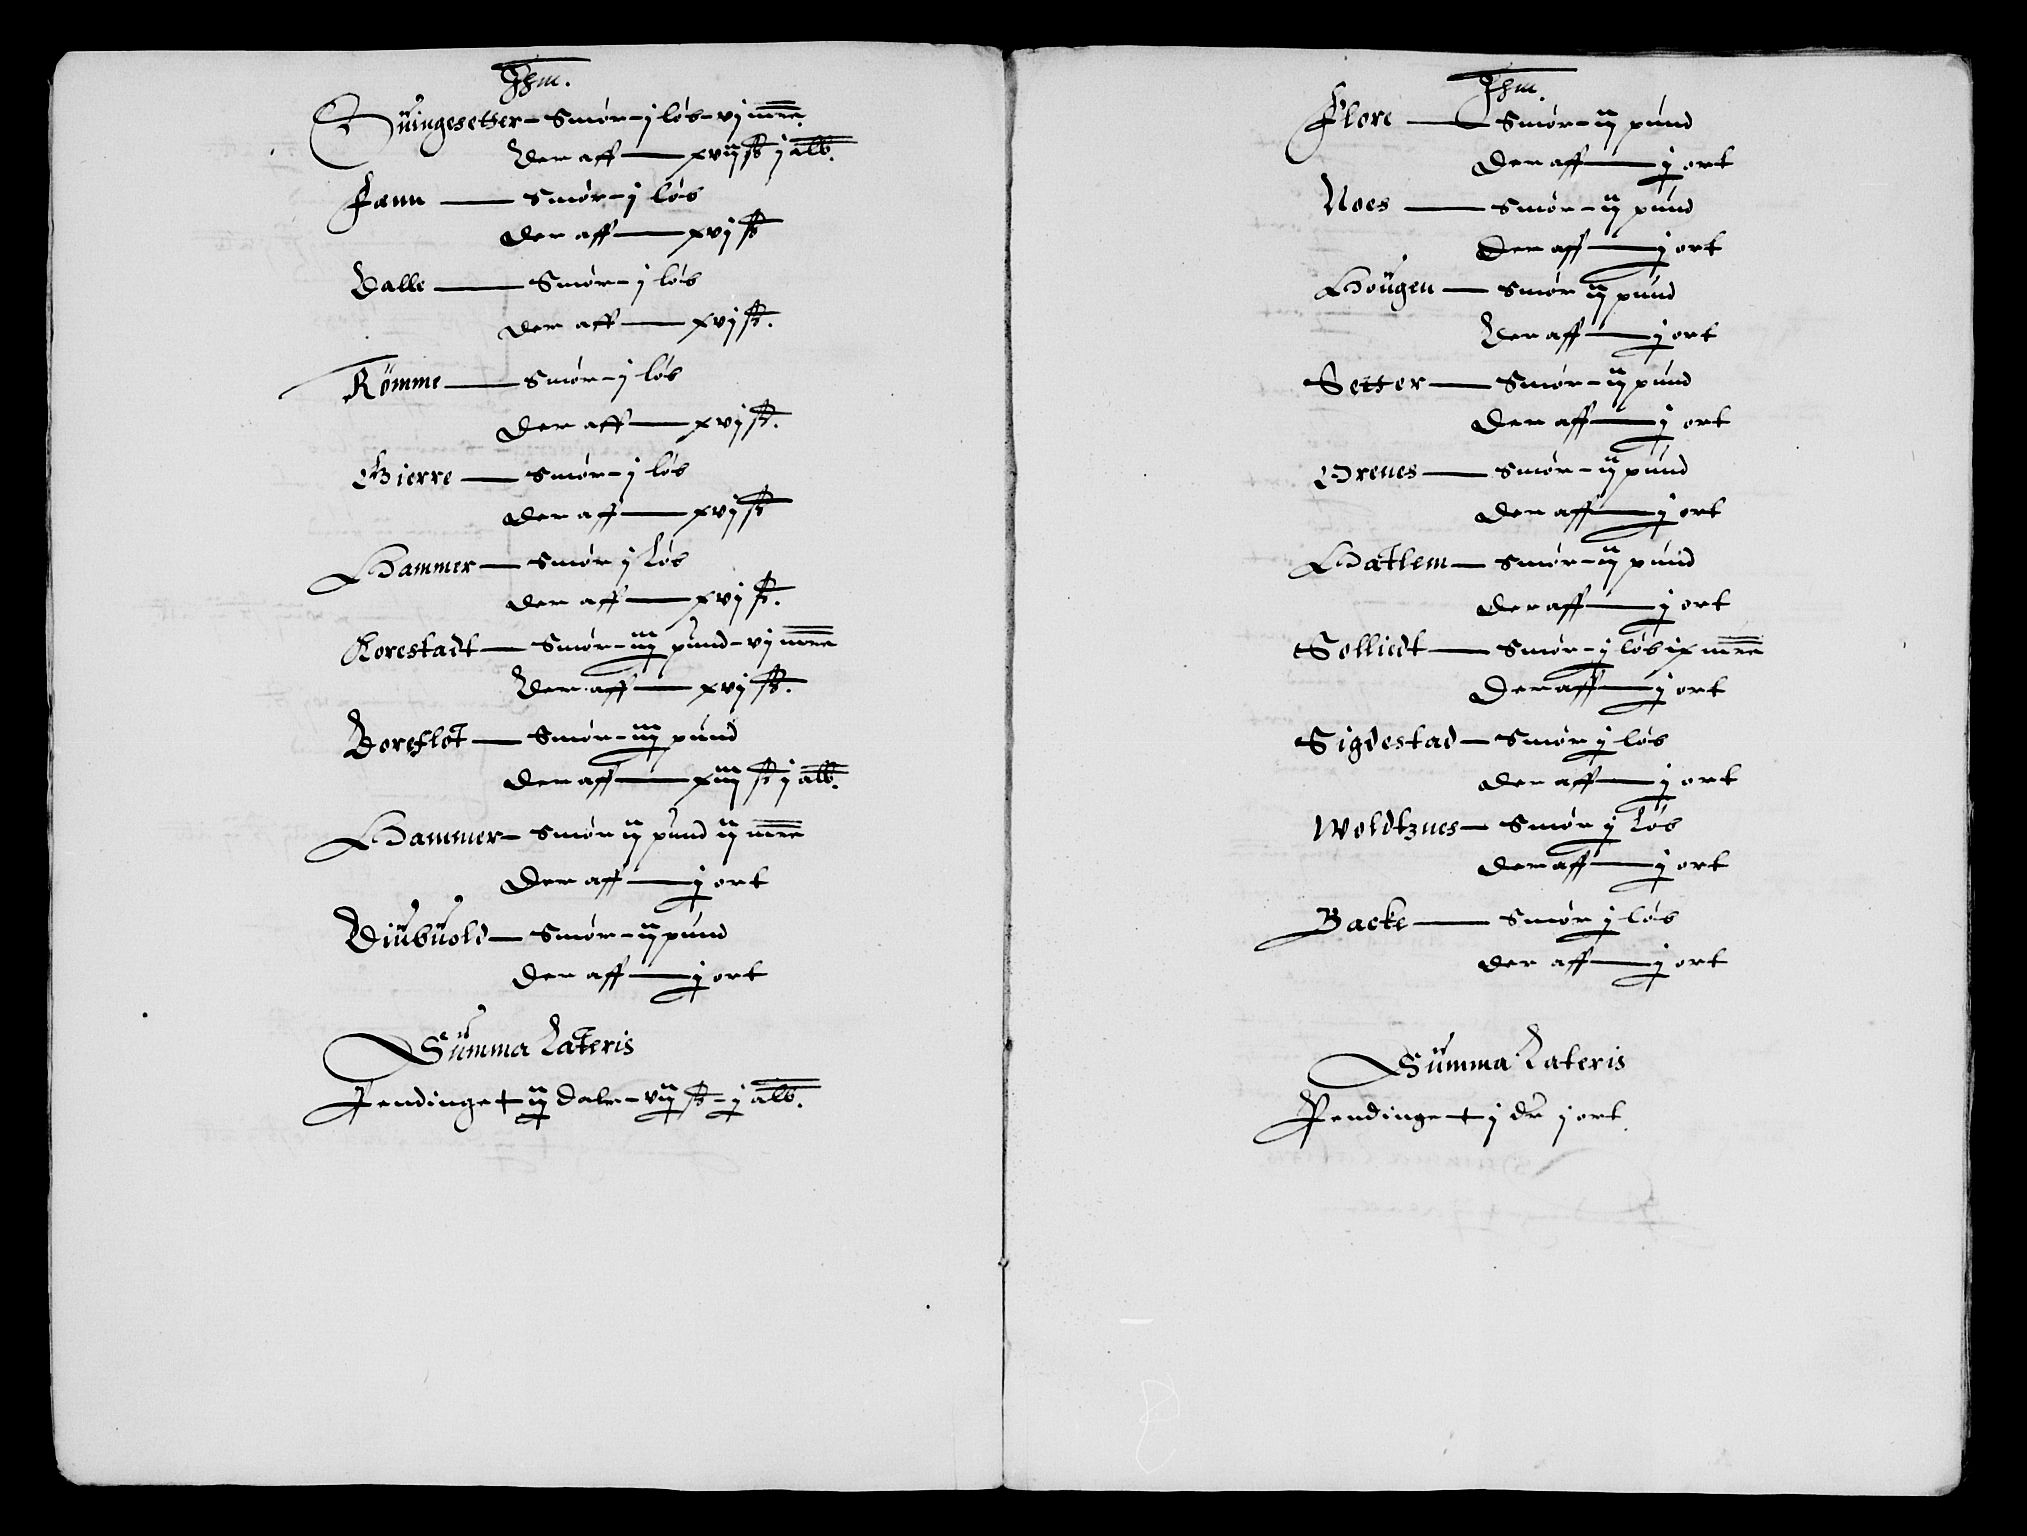 Jhm.
Suingesetter – Smør – j løb – vj mrc.
Der aff — xvij ß j alb.
Fænn — Smør – j løb
Der aff — xvj ß
Valle — Smør – j løb
Der aff — xvj ß.
Römme — Smør – j løb
Der aff — xvj ß.
Gierre — Smør – j løb
Der aff — xvj ß
Hammer — Smør j løb
Der aff — xvj ß.
Korestadt — Smør – iiij pund – vj mrc
Der aff — xvj ß.
Boreflot — Smør – iiij pund
Der aff — xiiij ß j alb.
Hammer – Smør iij pund iij mrc
Der aff — j ort
Diubuold — Smør – iij pund
Der aff — j ort
Summa Lateris
Pendinge + iij dalr – viij ß – j alb.
Jhm.
Flore — Smør – iij pund
Der aff — j ort
Noes — Smør – iij pund
Der aff — j ort
Hougen — Smør iij pund
Der aff — j ort
Setter — Smør – iij pund
Der aff — j ort
Grenes — Smør – iij pund
Der aff — j ort
Hatlem — Smør – iij pund
Der aff — j ort
Solliedt — Smør – j løb ix mrc
Der aff — j ort
Sigdestad — Smør j løb
Der aff — j ort
Woldtznes — Smør j løb
Der aff — j ort
Backe — Smør j løb
Der aff — j ort
Summa Lateris
Pendinge + j dr j ort.